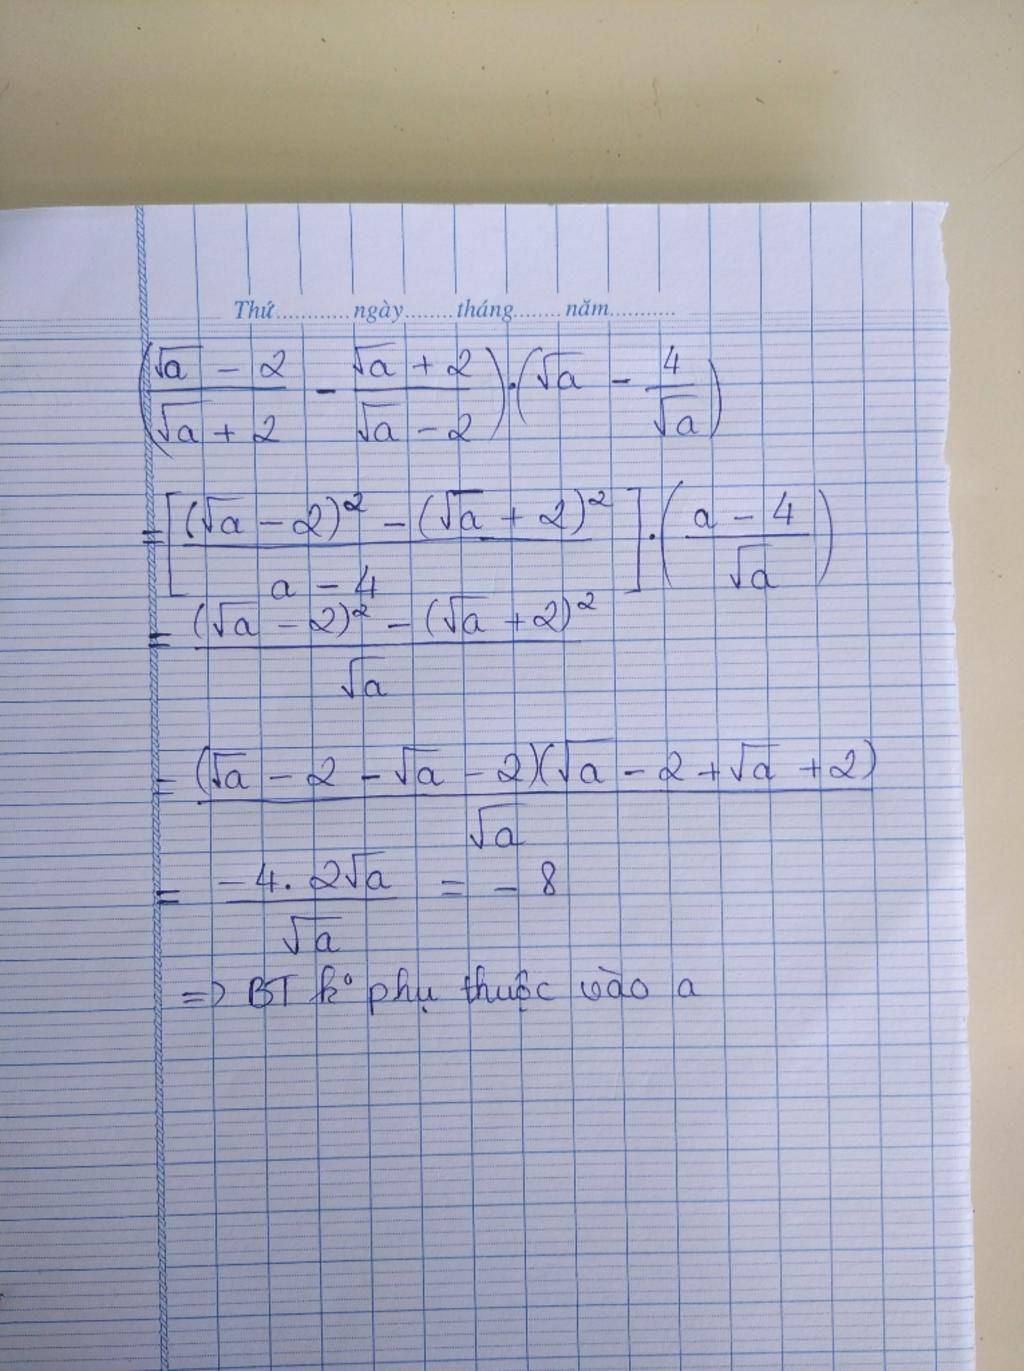 Thứ............ngày........tháng........năm...........
(√a - 2 / √a + 2 - √a + 2 / √a - 2) . (√a - 4 / √a)
= [(√a - 2)² - (√a + 2)² / a - 4] . (a - 4 / √a)
= (√a - 2)² - (√a + 2)² / √a
= (√a - 2 - √a - 2)(√a - 2 + √a + 2) / √a
= -4. 2√a / √a = - 8
=> BT k° phụ thuộc vào a